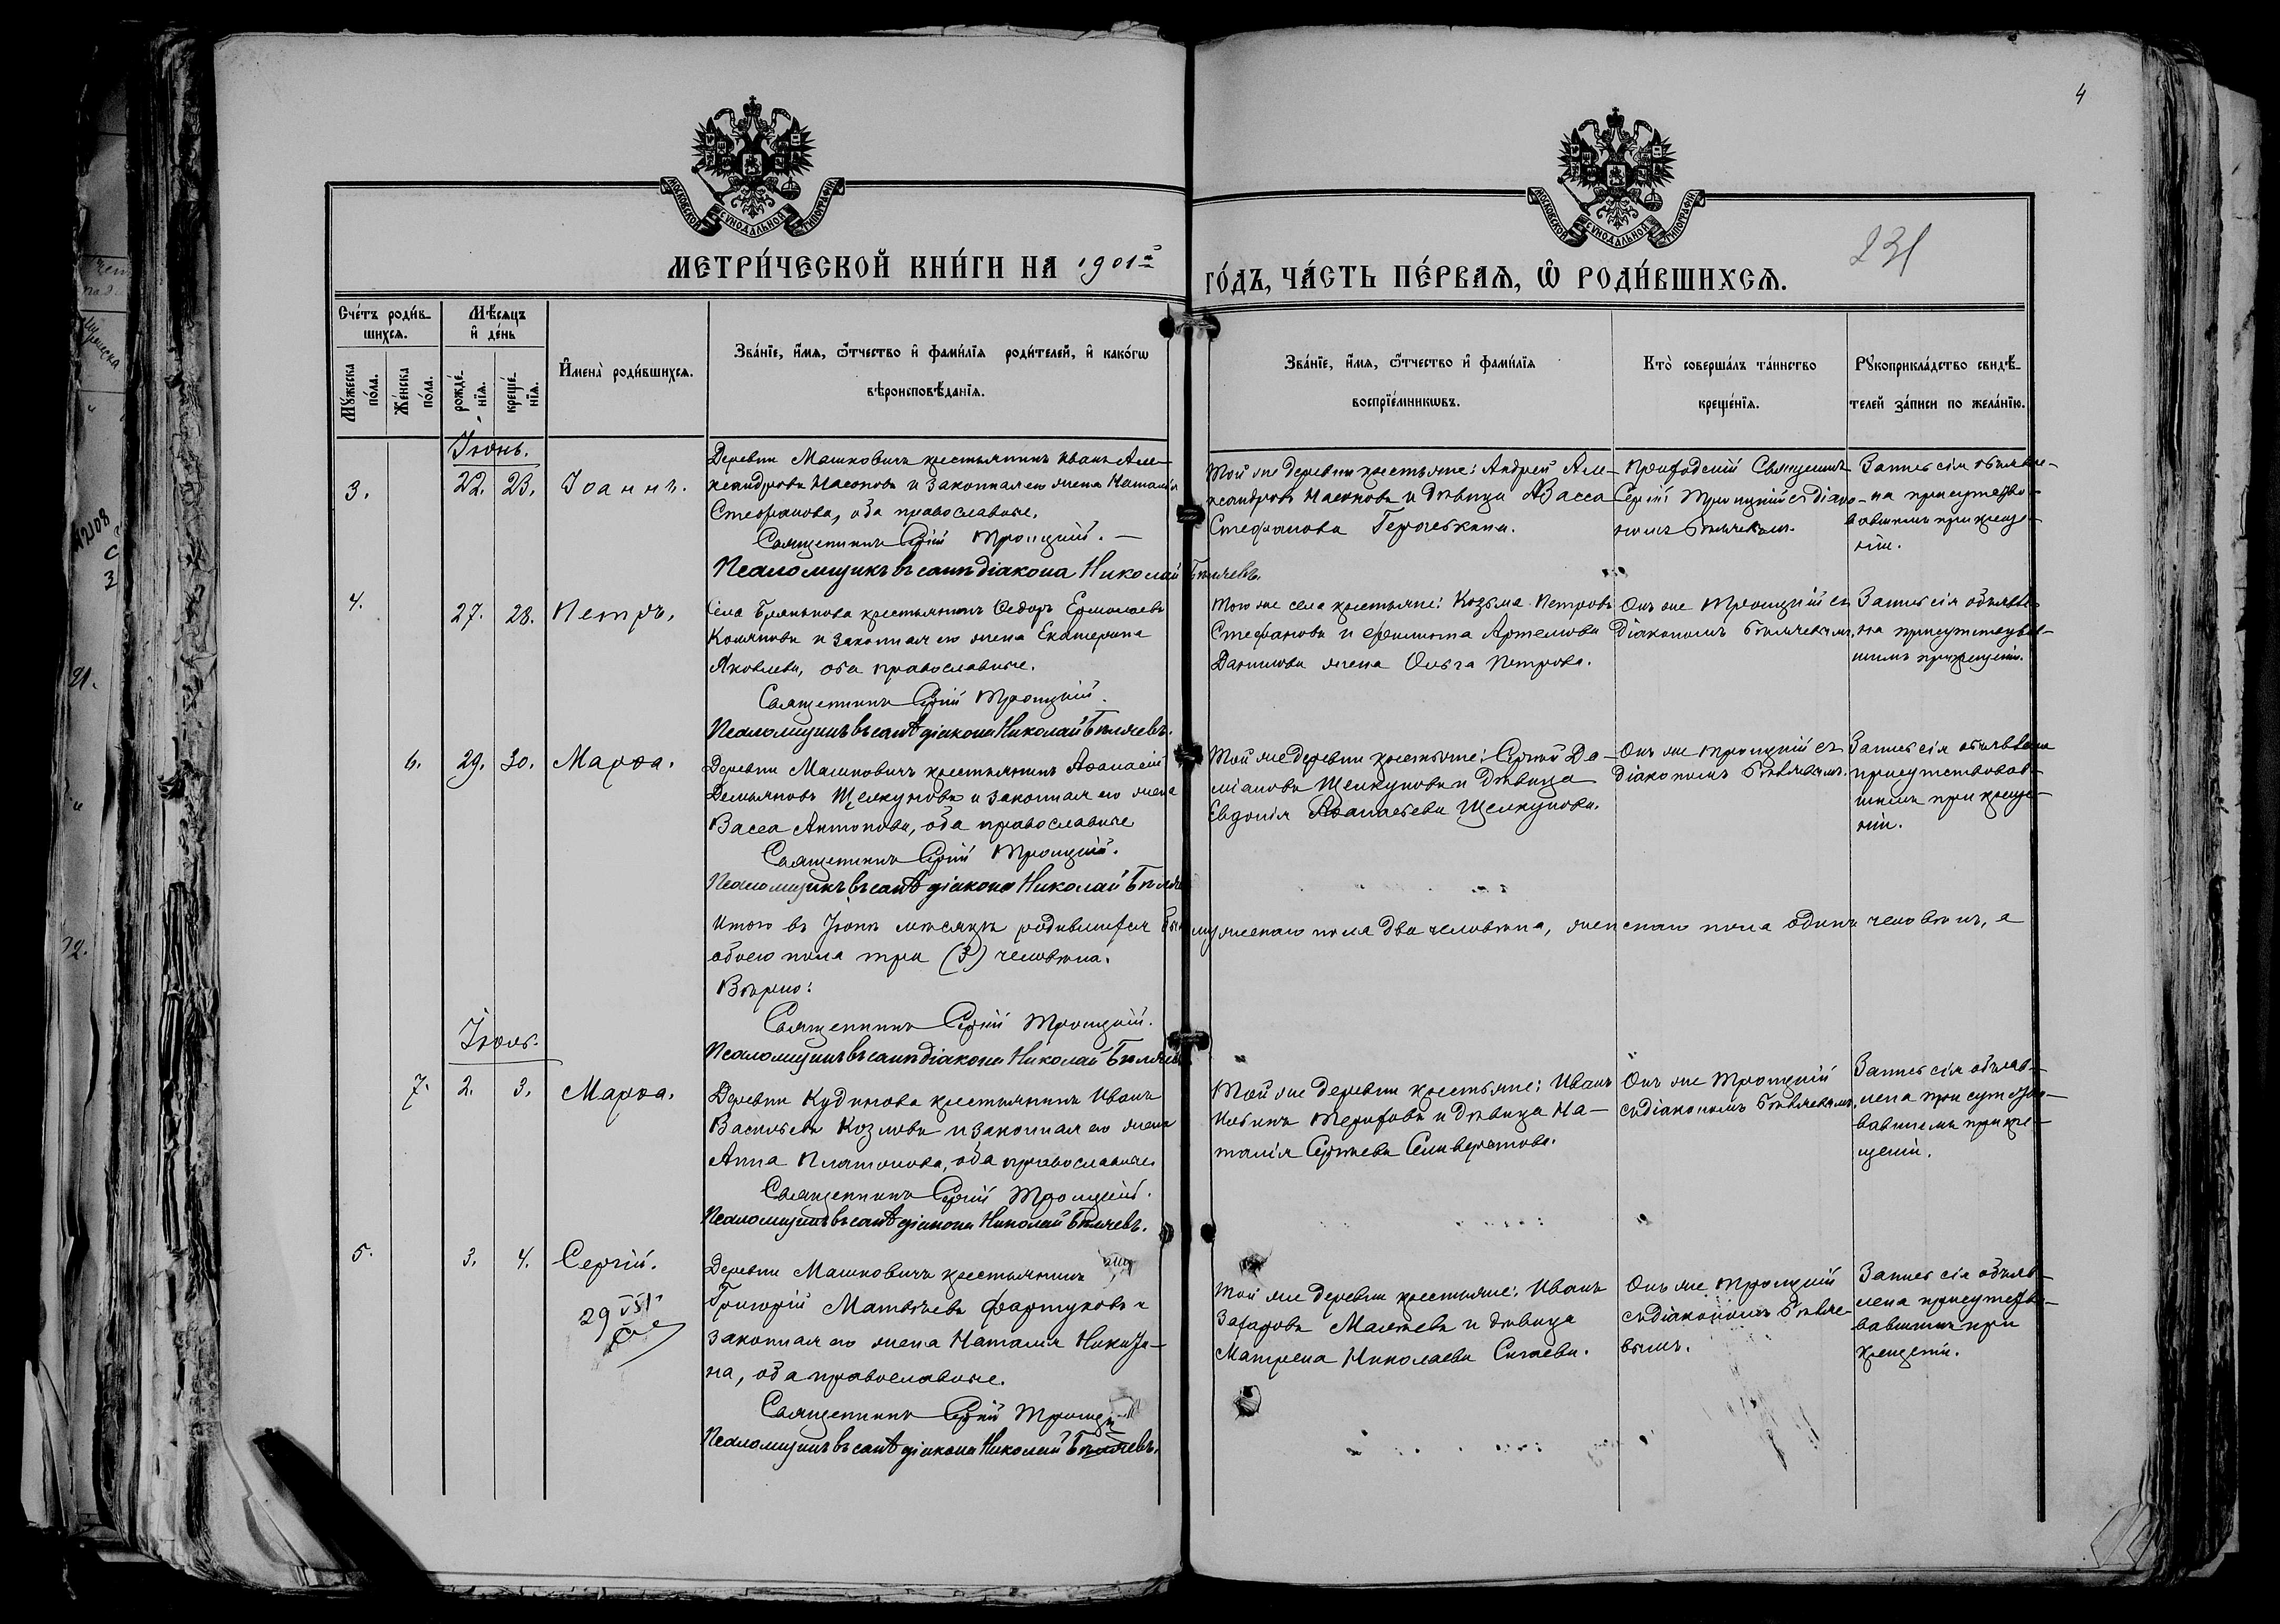 4
МОСКОВСКОЙ СѴНОДАЛЬНОЙ ТИПОГРАФІИ
МОСКОВСКОЙ СѴНОДАЛЬНОЙ ТИПОГРАФІИ
231
МЕТРИ́ЧЕСКОЙ КНИ́ГИ НА 1901й ГО́ДЪ, ЧА́СТЬ ПЕ́РВАѦ, Ѡ РОДИ́ВШИХСѦ.
Сче́тъ роди́в-
шихсѧ.
Мꙋ́жеска
по́ла.
Же́нска
по́ла.
Мѣ́сѧцъ
и҆ де́нь
рожде́-
нїѧ.
креще́-
нїѧ.
И҆мена̀ роди́вшихсѧ.
Зва́нїе, и҆́мѧ, ѻ҆́тчество и҆ фамѝлїѧ роди́телей, и҆ како́гѡ
вѣроисповѣ́данїѧ.
Зва́нїе, и҆́мѧ, ѻ҆́тчество и҆ фами́лїѧ
воспрїе́мникѡвъ.
Кто̀ соверша́лъ та́инство
креще́нїѧ.
Рꙋкоприкла́дство свидѣ́-
телей за́писи по жела́нїю.
Іюнь.
3. 22. 23. Іоаннъ.
Деревни Машковичъ крестьянинъ Иванъ Але-
ксандровъ Насоновъ и законная его жена Наталія
Стефанова, оба православные.
Священникъ Сергій Троицкій.
Псаломщикъ въ санѣ діакона Николай Бѣляевъ.
Той же деревни крестьяне: Андрей Але-
ксандровъ Насоновъ и дѣвица Васса
Стефанова
Приходскій Священникъ
Сергій Троицкій съ діако-
номъ Бѣляевымъ.
Запись сія объявле-
на присутство-
вавшимъ при креще-
ніи.
4. 27. 28. Петръ.
Села крестьянинъ Ѳедоръ Ермолаевъ
и законная его жена Екатерина
Яковлева, оба православные.
Священникъ Сергій Троицкій.
Псаломщикъ въ санѣ діакона Николай Бѣляевъ.
Того же села крестьяне: Козьма Петровъ
Стефановъ и Артемова
Данилова жена Ольга Петрова.
Онъ же Троицкій съ
діакономъ Бѣляевымъ.
Запись сія объявле-
на присутствовав-
шимъ при крещеніи.
6. 29. 30. Марѳа.
Деревни Машковичъ крестьянинъ Аѳанасій
Демьяновъ Щелкуновъ и законная его жена
Васса Антонова, оба православные
Священникъ Сергій Троицкій.
Псаломщикъ въ санѣ діакона Николай Бѣляевъ
Той же деревни крестьяне: Сергій Да-
міановъ Щелкуновъ и дѣвица
Евдокія Аѳанасьева Щелкунова.
Онъ же Троицкій съ
діакономъ Бѣляевымъ.
Запись сія объявлена
присутствовав-
шимъ при креще-
ніи.
Итого въ Іюнѣ мѣсяцѣ родившихся было мужескаго пола два человѣка, женскаго пола одинъ человѣкъ, а
обоего пола три (3) человѣка.
Вѣрно:
Священникъ Сергій Троицкій.
Псаломщикъ въ санѣ діакона Николай Бѣляевъ
Іюль.
7. 2. 3. Марѳа.
Деревни Кудинова крестьянинъ Иванъ
Васильевъ Козловъ и законная его жена
Анна Платонова, оба православные.
Священникъ Сергій Троицкій.
Псаломщикъ въ санѣ діакона Николай Бѣляевъ.
Той же деревни крестьяне: Иванъ
и дѣвица На-
талія Сергѣева Селиверстова.
Онъ же Троицкій
съ діакономъ Бѣляевымъ.
Запись сія объяв-
лена присутство-
вавшимъ при кре-
щеніи.
5. 3. 4. Сергій.
29
Деревни Машковичъ крестьянинъ
Григорій Матвѣевъ Фартуковъ и
законная его жена Наталія Никити-
на, оба православные.
Священникъ Сергій Троицкій
Псаломщикъ въ санѣ діакона Николай Бѣляевъ.
Той же деревни крестьяне: Иванъ
Захаровъ и дѣвица
Матрена Николаева
Онъ же Троицкій
съ діакономъ Бѣляе-
вымъ.
Запись сія объяв-
лена присутство-
вавшимъ при
крещеніи.